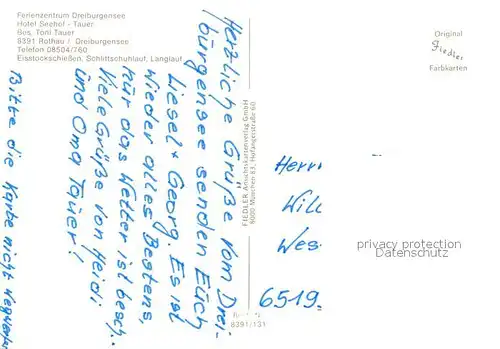 Ferienzentrum Dreiburgensee
Hotel Seehof - Tauer
Bes. Toni Tauer
8391 Rothau / Dreiburgensee
Telefon 08504/760
Eisstockschießen, Schlittschuhlauf, Langlauf
Original
Fiedler
Farbkarten
Herzliche Grüße vom Drei-
bürgensee senden Euch
Liesel + Georg. Es ist
wieder alles Bestens,
nur das Wetter ist besch.
Viele Grüße von Heidi
und Oma Tauer!
Bitte die Karte nicht wegwerfen
FIEDLER Ansichtskartenverlag GmbH
8000 München 83, Hofangerstraße 60
Herrn
Will
Wes
6519
8391/131
privacy protection
Datenschutz